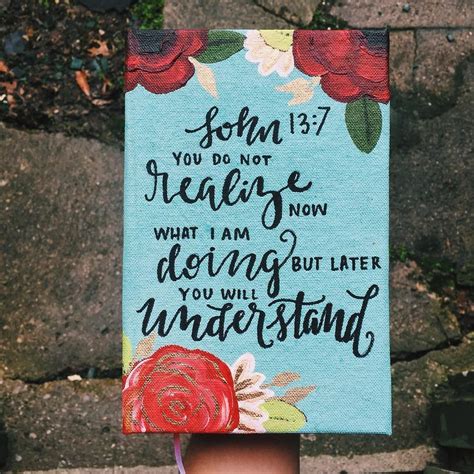 John 13:7
YOU DO NOT
realize NOW
WHAT I AM
doing BUT LATER
YOU WILL
understand